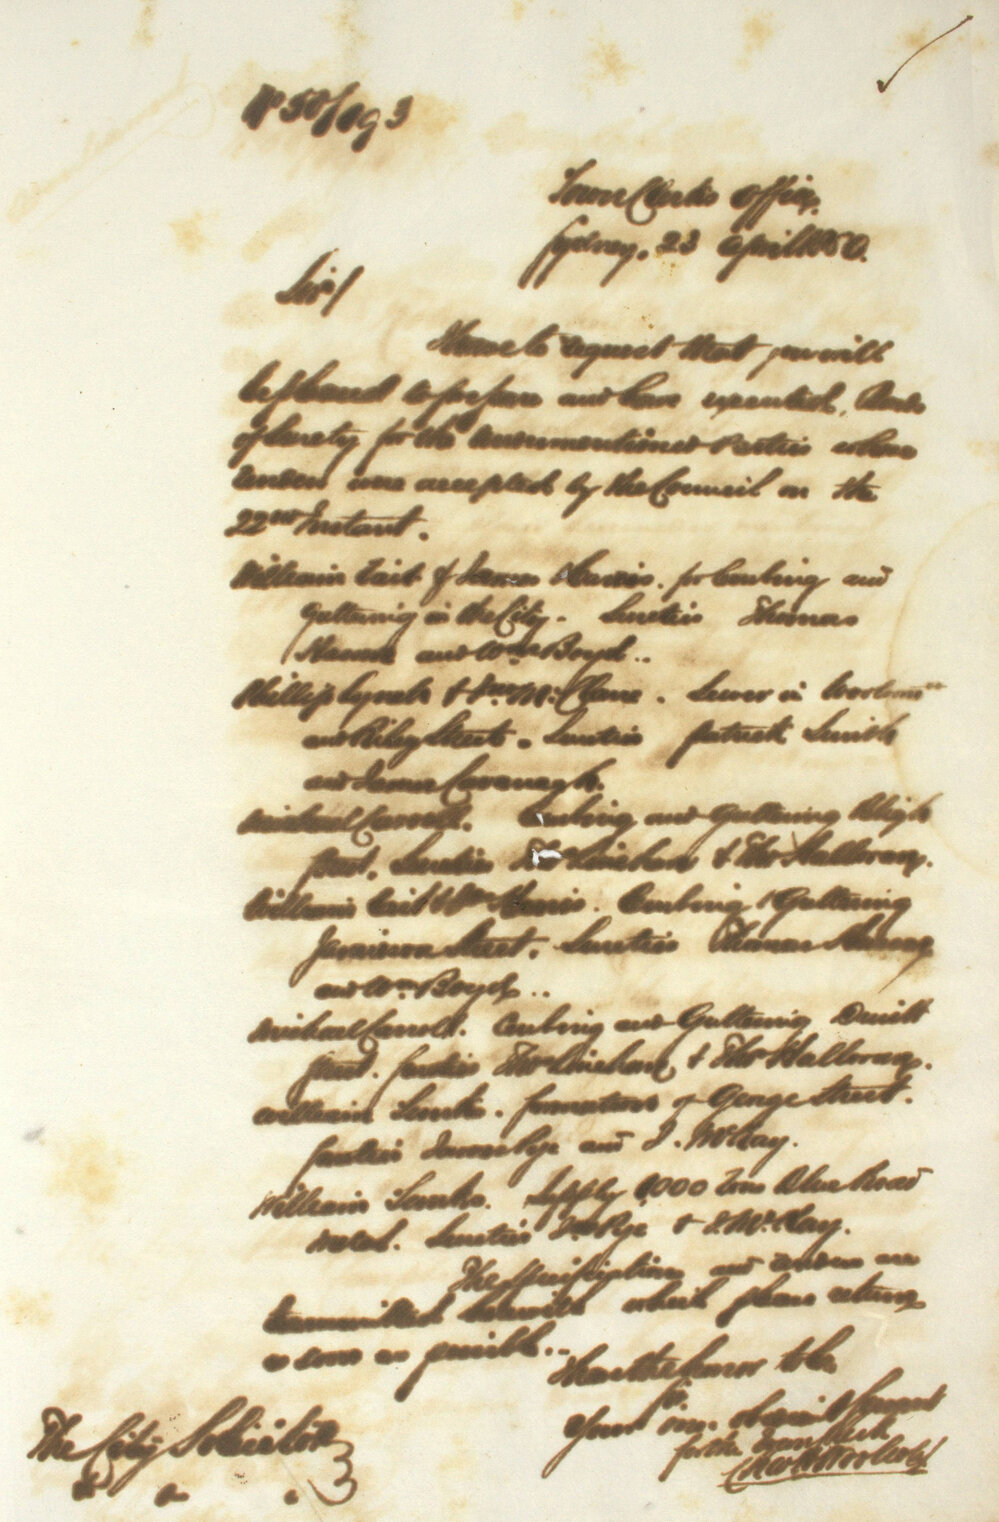 No 50/193
Town Clerks Office,
Sydney, 23 April 1850.
Sir/
I have to request that you will
be pleased to prepare and have executed, Bonds
of Surety for the undermentioned Parties whose
Tenders were accepted by the Council on the
22nd Instant.
William Tait & James Harris. for Curbing and
Guttering in the City. Sureties Thomas
and Wm Boyd..
Phillip Lynch & McClane. Sewer in
and Riley Street. Sureties Patrick Smith
and James Cavanagh.
Michael Carroll. Curbing and Guttering Bligh
Street. Sureties Thos Linehan & Thos Halloran.
William Tait & Harris. Curbing & Guttering
Jamieson Street. Sureties Thomas
and Wm Boyd..
Michael Carroll. Curbing and Guttering
Street. Sureties Thos Linehan & Thos Halloran.
William formation of George Street.
Sureties James Pye and J. McKay.
William Supply 1000 Tons Blue Road
metal. Sureties Jas Pye & J. McKay.
The Specifications and Tenders are
transmitted herewith which please return
as soon as possible..
I have the honor to be
Sir
Your obedient Servant
for the Town Clerk
The City Solicitor